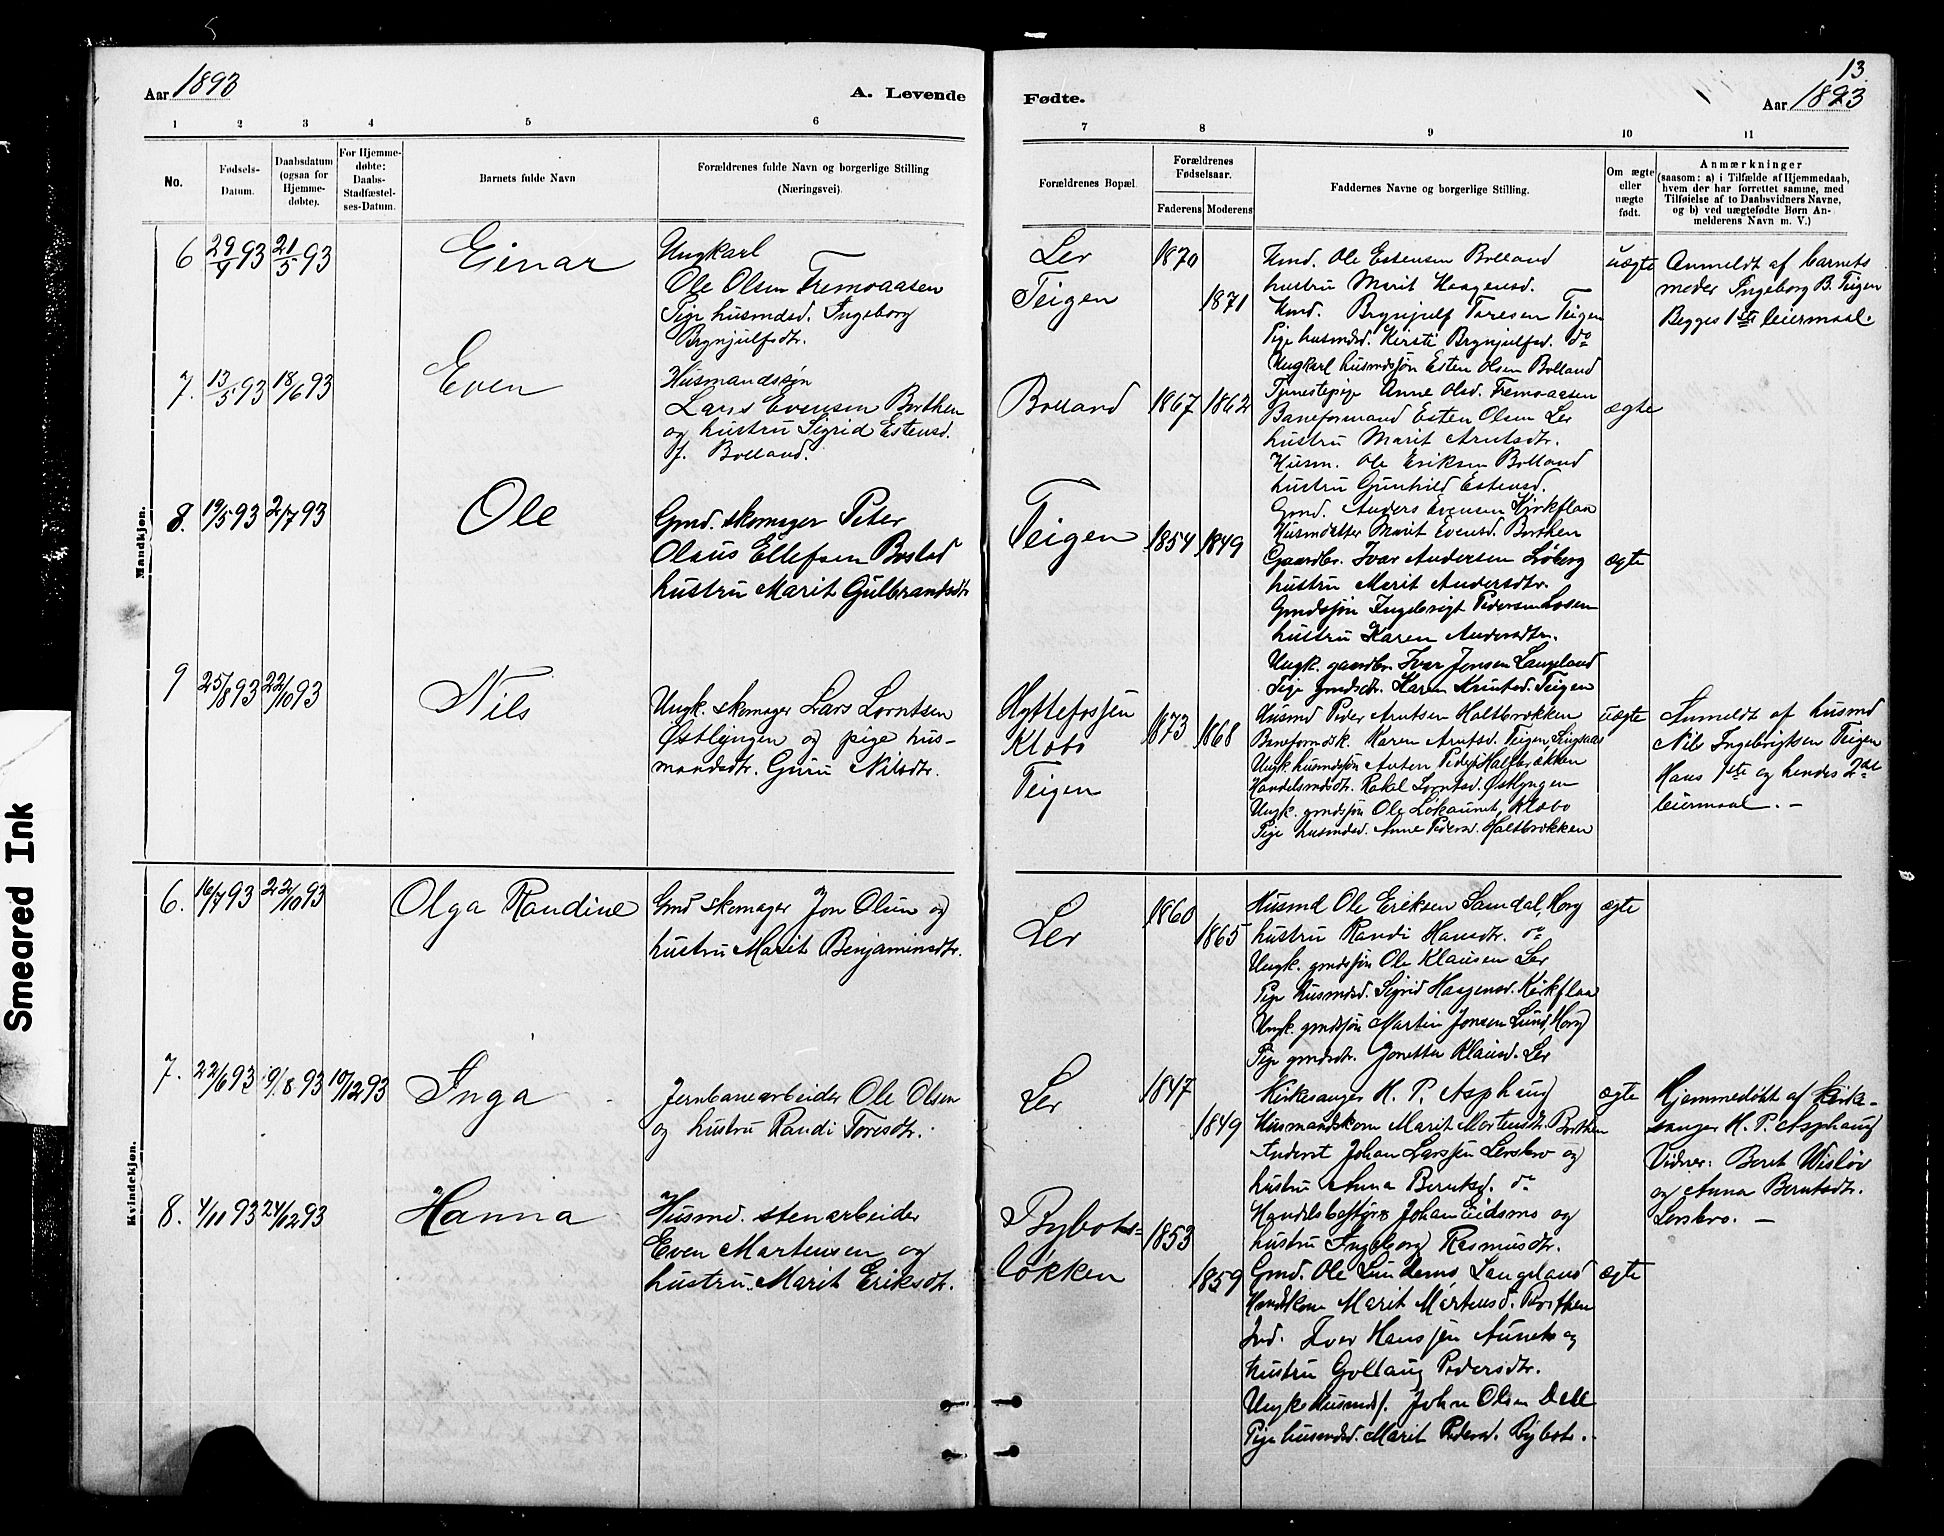 Smeared Ink
Aar 1893
A. Levende
1 2 3 4 5 6
No.
Fødsels-
Datum.
Daabsdatum
(ogsaa for
Hjemme-
døbte).
For Hjemme-
døbte:
Daabs-
Stadfæstel-
ses-Datum.
Barnets fulde Navn
Forældrenes fulde Navn og borgerlige Stilling
(Næringsvei).
Mandkjøn.
6 29/4 93 21/5 93 Einar
Ungkarl
Ole Olsen Fremoaasen
Pige husmdsd. Ingeborg
Brynjulfsdtr.
7. 13/5 93 18/6 93 Even
Husmandssøn
Lars Evensen Borthen
og hustru Sigrid Estensd.
f. Bolland.
8. 19/5 93 2/7 93 Ole
Gmd. skomager Peter
Olaus Ellefsen Bostad
hustru Marit Gulbrandsdtr
9 25/8 93 22/10 93 Nils
Ungk. skomager Lars Lorntsen
Østlyngen og pige hus-
mandsdtr. Guru Nilsdtr.
Kvindekjøn.
6. 16/7 93 22/10 93 Olga Randine
Gmd skomager Jon Olsen og
hustru Marit Benjaminsdtr.
7. 22/6 93 9/8 93 10/12 93 Inga
Jernbanearbeider Ole Olsen
og hustru Randi Toresdtr.
8. 4/11 93 24/12 93 Hanna
Husmd. stenarbeider
Even Martensen og
hustru Marit Eriksdtr.
13.
Fødte.
Aar 1893
7 8 9 10 11
Forældrenes Bopæl.
Forældrenes
Fødselsaar.
Faderens Moderens
Faddernes Navne og borgerlige Stilling.
Om ægte
eller
uægte
født.
Anmærkninger
(saasom: a) i Tilfælde af Hjemmedaab,
hvem der har forrettet samme, med
Tilføielse af to Daabsvidners Navne,
og b) ved uægtefødte Børn An-
melderens Navn m. V.)
Ler
Teigen
1870
1871
Hmd. Ole Estensen Bolland
hustru Marit Haagensd.
Hmd. Brynjulf Toresen Teigen
Pige husmdsd. Kirsti Brynjulfsd. do
Ungkarl husmdssøn Esten Olsen Bolland
Tjenestepige Anne Olsd. Fremoaasen
uægte
Anmeldt af barnets
moder Ingeborg B. Teigen
Begges 1ste leiermaal.
Bolland 1867 1862
Baneformand Esten Olsen Ler
hustru Marit Arntsdtr.
Husm. Ole Eriksen Bolland
hustru Gunhild Estensd.
Gmd. Anders Evensen Kirkflaa
Husmdsdtter Marit Evensd. Borthen
ægte
Teigen 1854 1849
Gaardbr. Ivar Andersen Løberg
hustru Marit Andersdtr.
Gmdssøn Ingebrigt Pedersen Losen
hustru Karen Andersdtr.
Ungk. gaardbr. Ivar Jonsen Langeland
Pige gmdsdtr. Karen Knutsd. Teigen
ægte
Hyttefossen
Klæbo
Teigen
1873 1868
Husmd Peder Arntsen Haltbrækken
Baneformdsk. Karen Arntsd. Teigen, Singsaas
Ungk. husmdssøn Anton Peders. Haltbrækken
Handelsmdsdtr. Rakel Lorntsd. Østlyngen
Ungk. gmdssøn Ole Løkaunet, Klæbo
Pige husmdsd. Anne Pedersd. Haltbrækken
uægte
Anmeldt af husmd
Nils Ingebrigtsen Teigen
Hans 1ste og hendes 2det
leiermaal. –
Ler 1860 1865
Husmd Ole Eriksen Samdal, Horg
hustru Randi Hansdtr. do
Ungk. gmdssøn Ole Klausen Ler
Pige husmdsd. Sigrid Haagensd. Kirkflaa
Ungk. gmdssøn Martin Jonsen Lund, Horg
Pige gmdsdtr. Jonetta Klausd. Ler
ægte
Ler 1847 1849
Kirkesanger H. P. Asphaug
Husmandskone Marit Mortensdtr. Borthen
Johan Larssen Lersbro og
hustru Anna Berntsd. do
Handelsbestyrer Johan Eidsmo og
hustru Ingeborg Rasmusdtr.
ægte
Hjemmedøbt af Kirke-
sanger H. P. Asphaug
Vidner: Beret Wisløv
og Anna Berntsdtr.
Lersbro. –
Bybots-
løkken
1853 1859
Gmd. Ole Lundemo, Langeland
Marit Martensd. Borthen
Ind. Iver Hanssen Aunets og
hustru Gollaug Pedersdtr.
Ungk. Husmdss. John Olsen Dall
Pige husmdsd. Marit Pedersd. Bybots.
ægte